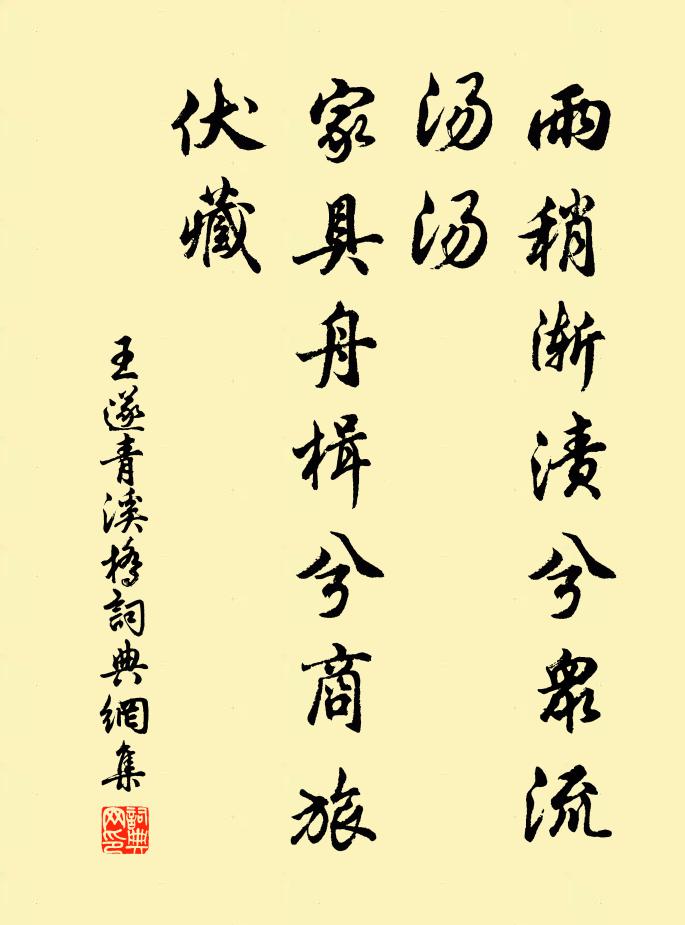 雨稍渐渍兮衆流
汤汤
家具舟楫兮商旅
伏藏
王遂青溪橋詞典網集
詞典網印